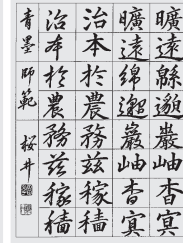 曠遠緜邈巖岫杳冥
曠遠綿邈巖岫杳冥
治本於農務茲稼穡
治本於農務茲稼穡
青墨 師範 桜井